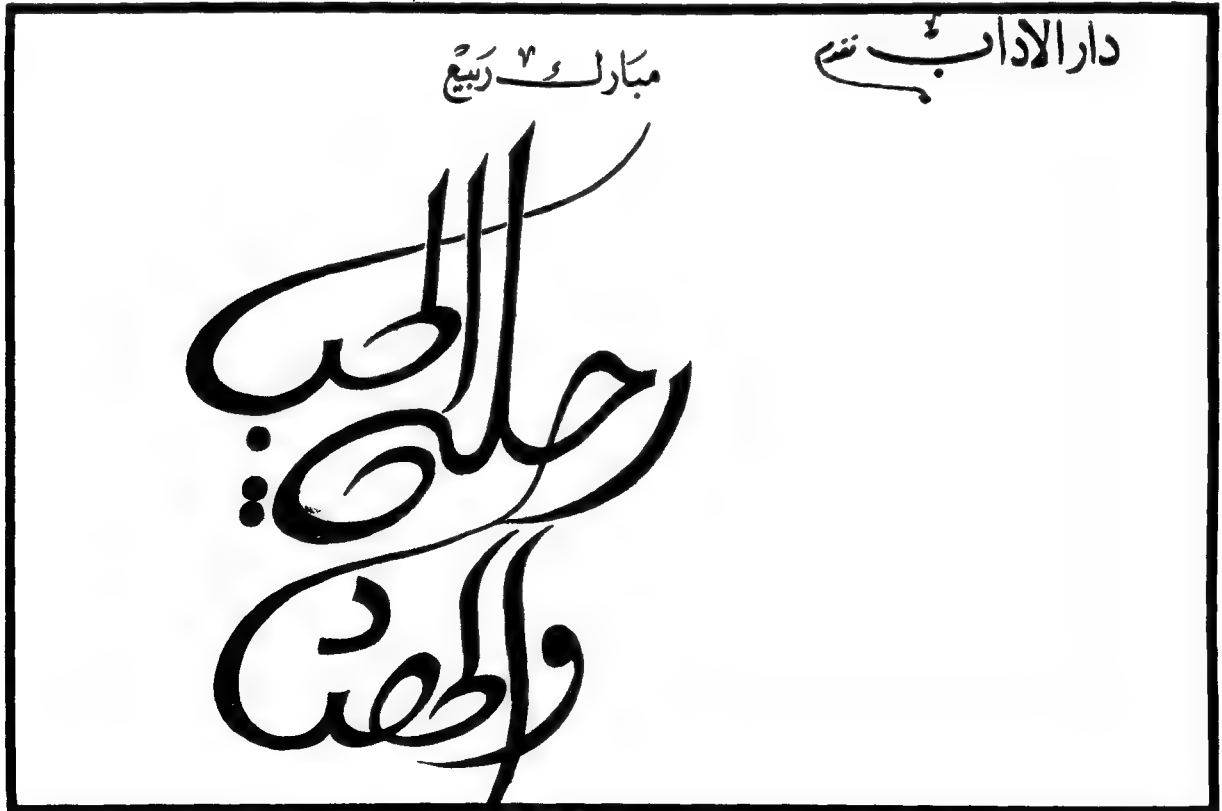 دار الاداب تقدم
مبارك ربيع
رحلة الحب
والحصاد